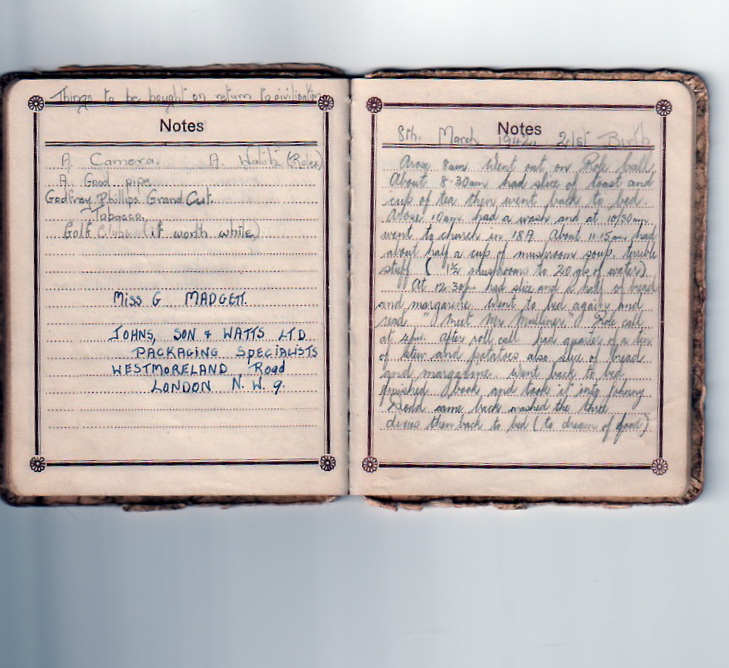 Things to be bought on return to civilisation
Notes
A Camera. A Watch (Rolex)
A Good pipe
Godfrey Phillips Grand Cut.
Tobacco.
Golf Clubs (if worth while)
MISS G MADGETT.
JOHNS, SON & WATTS LTD
PACKAGING SPECIALISTS
WESTMORELAND Road
LONDON N.W.9.
Notes
8th. March 1942. 21st Birth
Arose 8am Went out on Role Call
About 8.30am had slice of toast and
cup of tea then went back to bed.
Arose 10am had a wash and at 10/30am
went to church in 189. About 11.15am had
about half a cup of mushroom soup, terrible
stuff ( 1½ mushrooms to 20 gls of water).
At 12.30pm had slice and a half of bread
and margarine. Went to bed again and
read "Meet Mr Mulliner" Role call
at 4pm. After roll call had quarter of a
of stew and potatoes also slice of bread
and margarine. Went back to bed
finished book and took it into Johnny
came back washed the three
then back to bed (to dream of food)